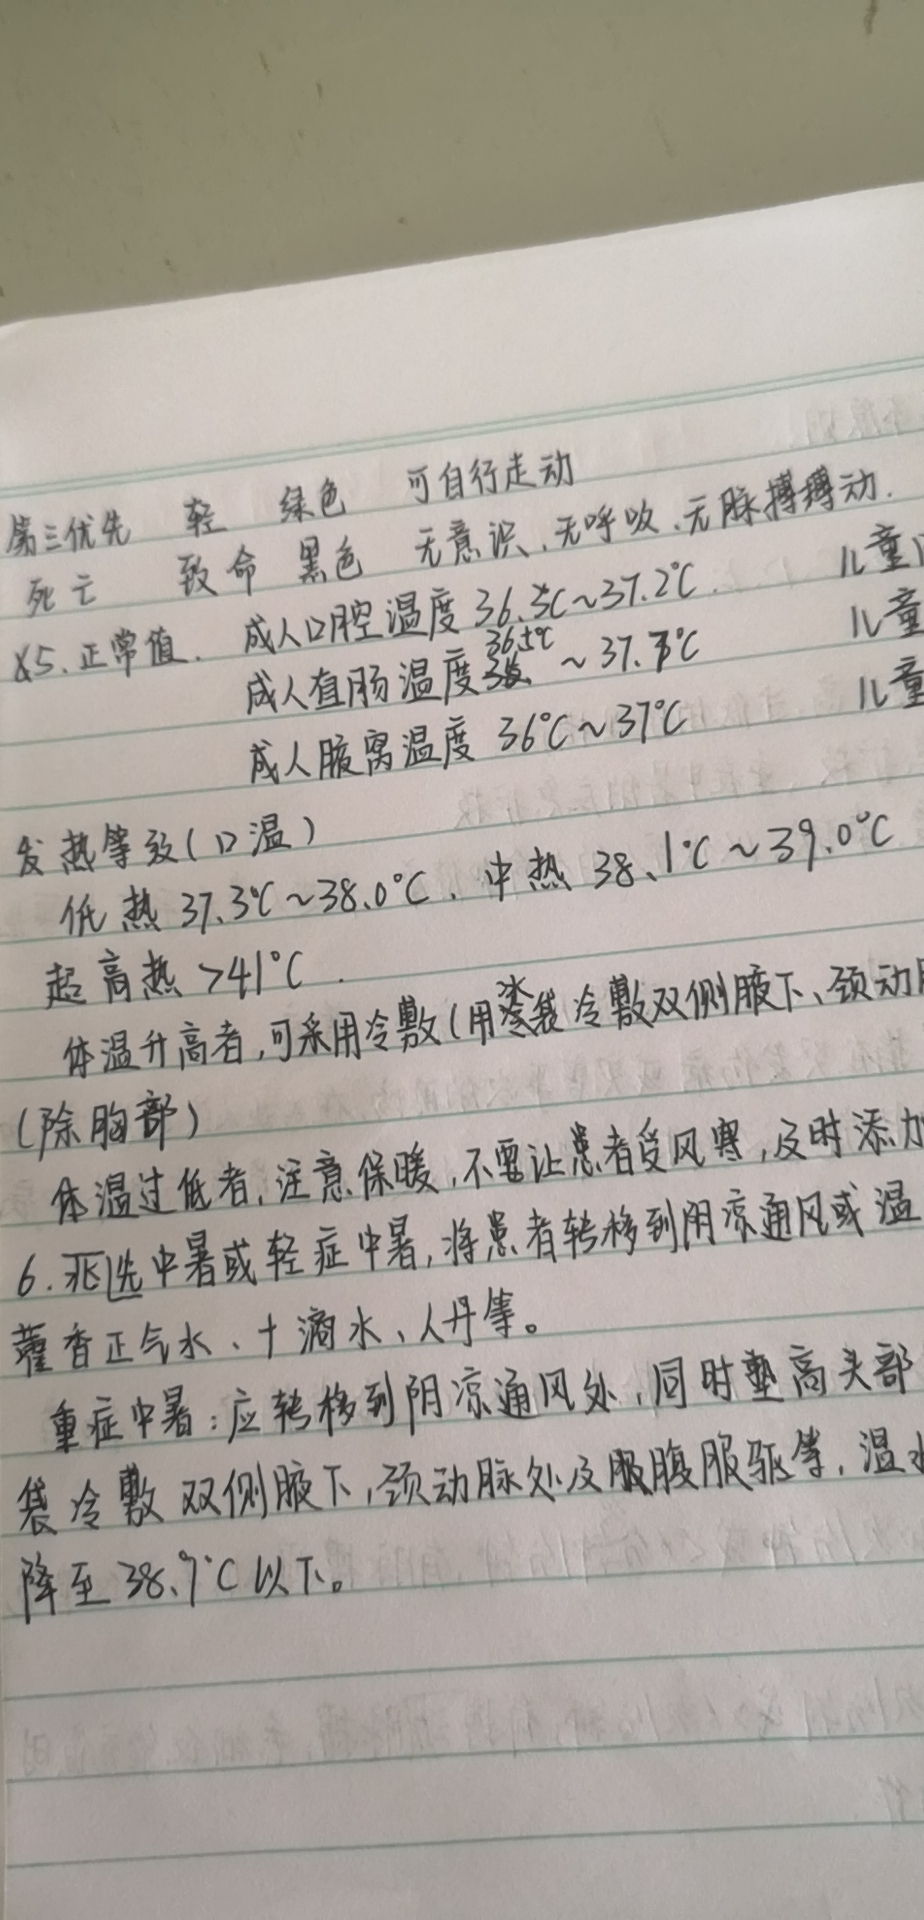 第三优先 轻 绿色 可自行走动
死亡 致命 黑色 无意识、无呼吸、无脉搏搏动.
5.正常值. 成人口腔温度36.3℃~37.2℃ 儿童
成人直肠温度36.5℃~37.7℃ 儿童
成人腋窝温度 36℃~37℃ 儿童
发热等级(口温)
低热 37.3℃~38.0℃. 中热 38.1℃~39.0℃
超高热 >41℃.
体温升高者,可采用冷敷(用冰袋冷敷双侧腋下、颈动
(除胸部)
体温过低者,注意保暖,不要让患者受风寒,及时添加
6.先兆中暑或轻症中暑,将患者转移到阴凉通风或温
藿香正气水、十滴水、人丹等。
重症中暑:应转移到阴凉通风处,同时垫高头部
袋冷敷双侧腋下,颈动脉处及腹股等,温水
降至38.9℃以下。